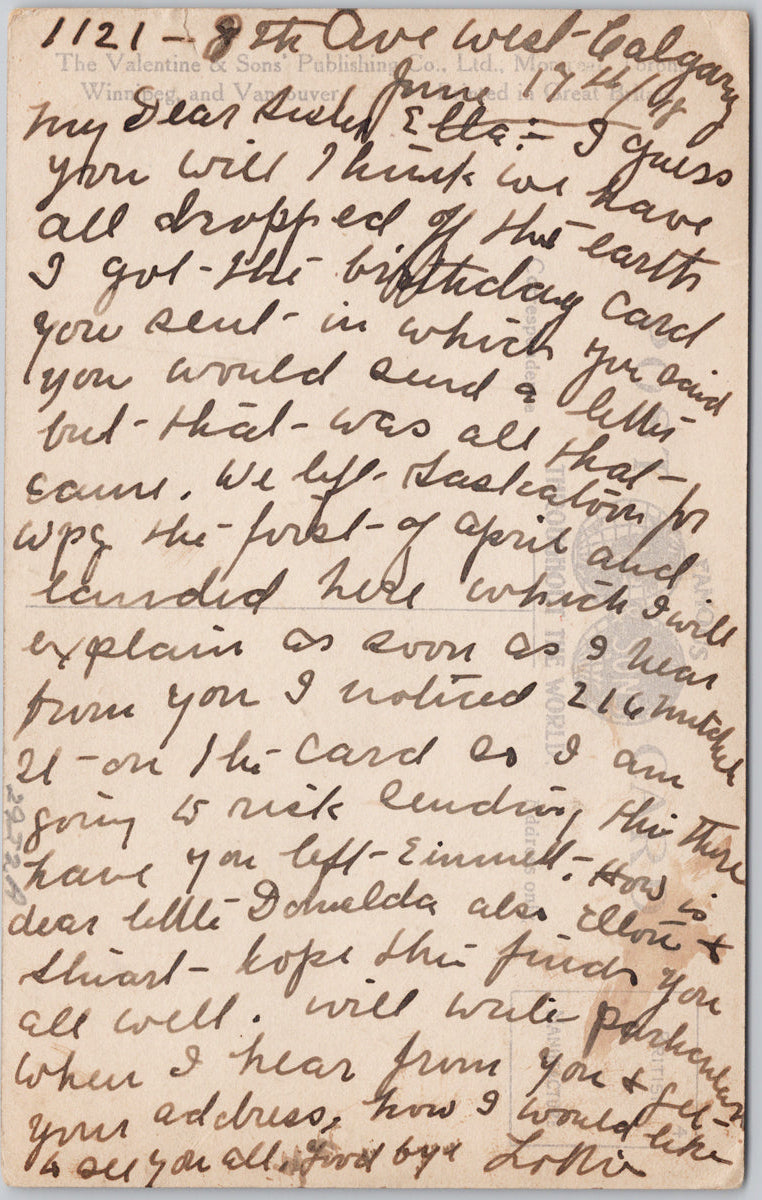 1121 - 8th Ave West - Calgary
June 17th
My Dear Sister Ella:- I guess
you will think we have
all dropped of the earth
I got the birthday card
you sent in which you said
you would send a letter
but that was all that
came. We left Saskatoon for
Wpg the first of April and
landed here which I will
explain as soon as I hear
from you I noticed 216
St on the card so I am
going to risk sending this there
have you left. How is
dear little Donalda also &
Stuart hope this finds you
all well. will write particulars
when I hear from you & get
your address, how I would like
to see you all. Good bye Lottie
The Valentine & Sons' Publishing Co., Ltd., Montreal, Toronto
Winnipeg, and Vancouver. Printed in Great Britain
Correspondence
POST CARD
FAMOUS
THROUGHOUT THE WORLD.
Address only
BRITISH
MANUFACTURE